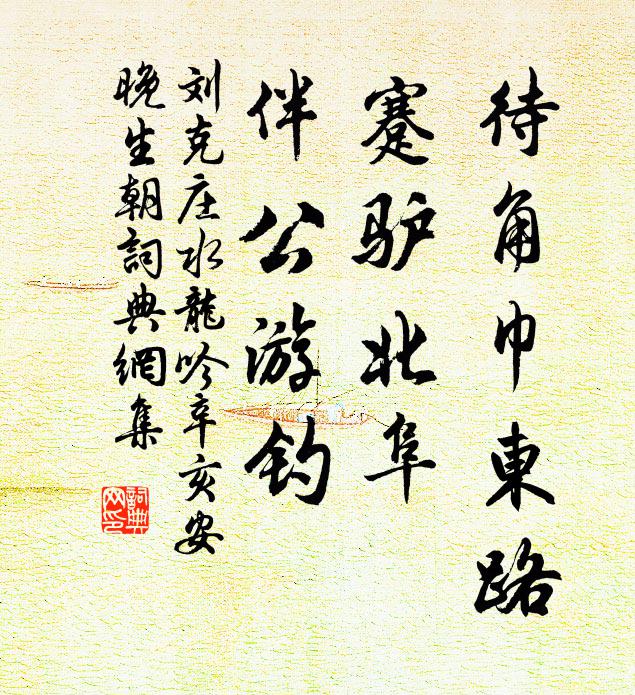 待角巾東路
蹇驴北阜
伴公游钓
刘克庄水龍吟辛亥安
晚生朝詞典網集
詞典
网印